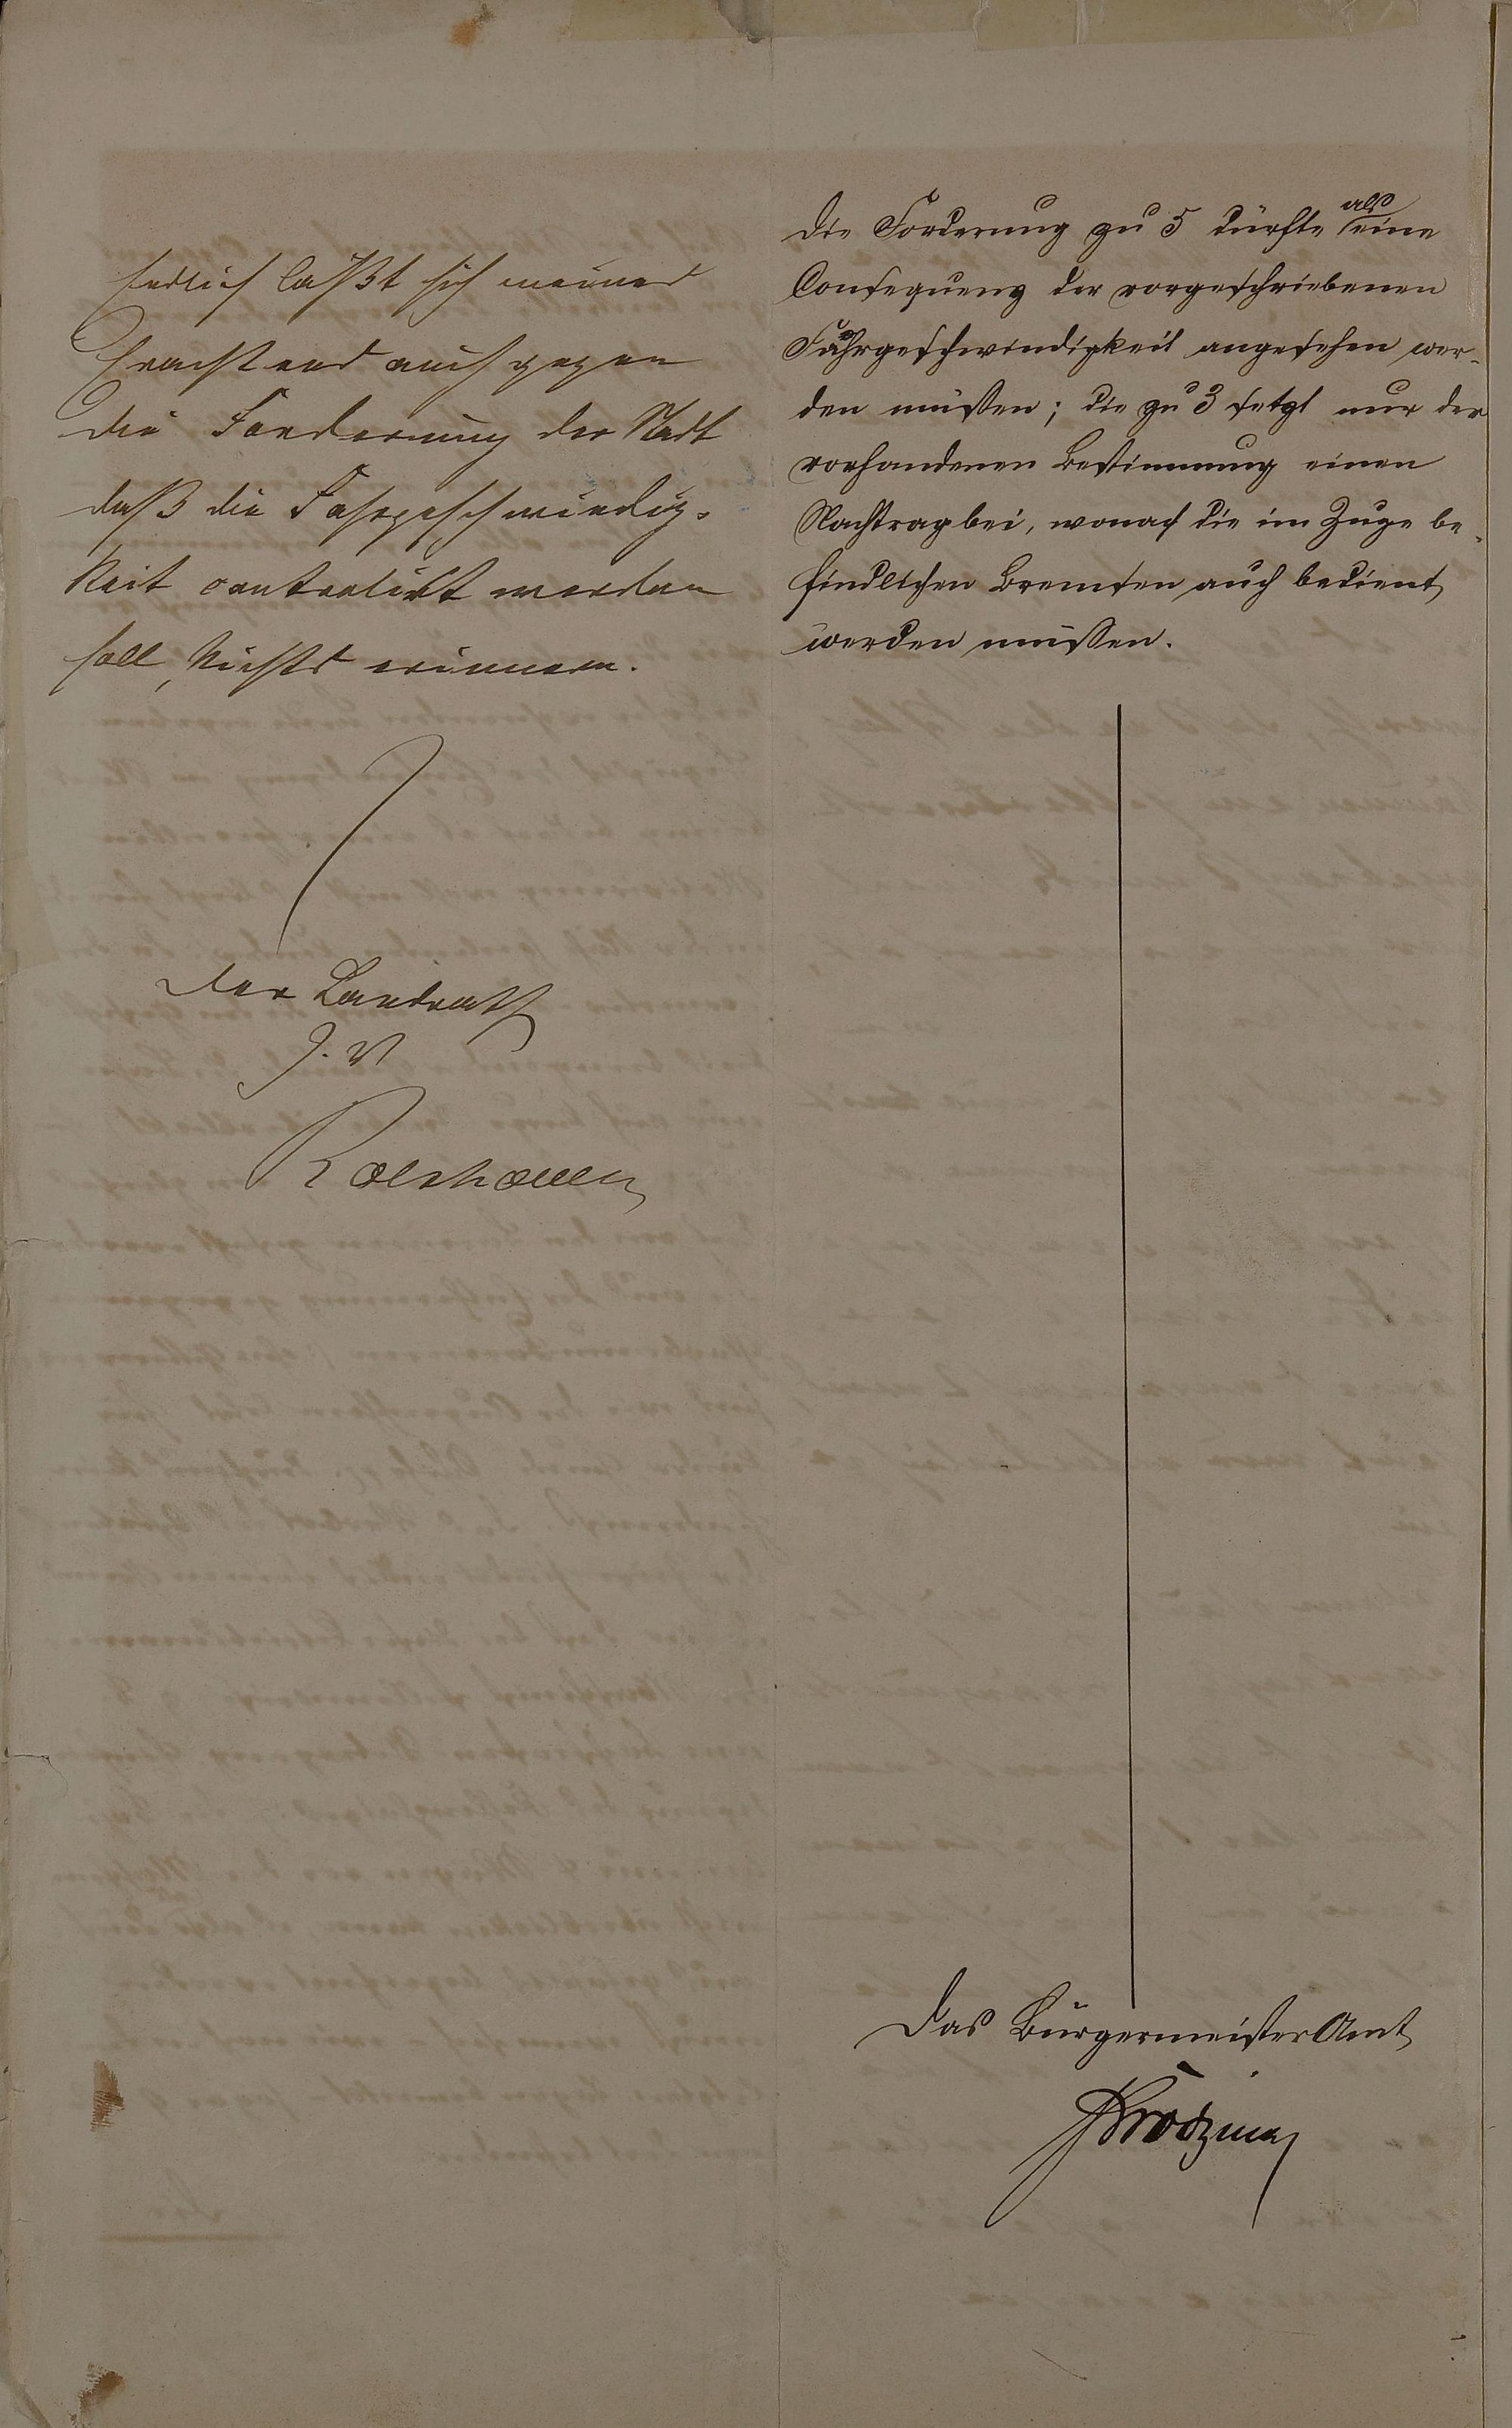 Endlich läßt sich meines
Erachtens auch gegen
die Forderung der Stadt
daß die Fahrgeschwindig-
keit controlirt werden
soll, Nichts erinnern.
Der Landrath
J. V
die Forderung zu 5 dürfte als eine
Consequenz der vorgeschriebenen
Fahrgeschwindigkeit angesehen wer-
den müssen; die zu 3 setzt nur der
vorhandenen Bestimmung einen
Nachtrag bei, wonach die im Zuge be-
findlichen Bremsen auch bedient
werden müssen.
Das Bürgermeister Amt